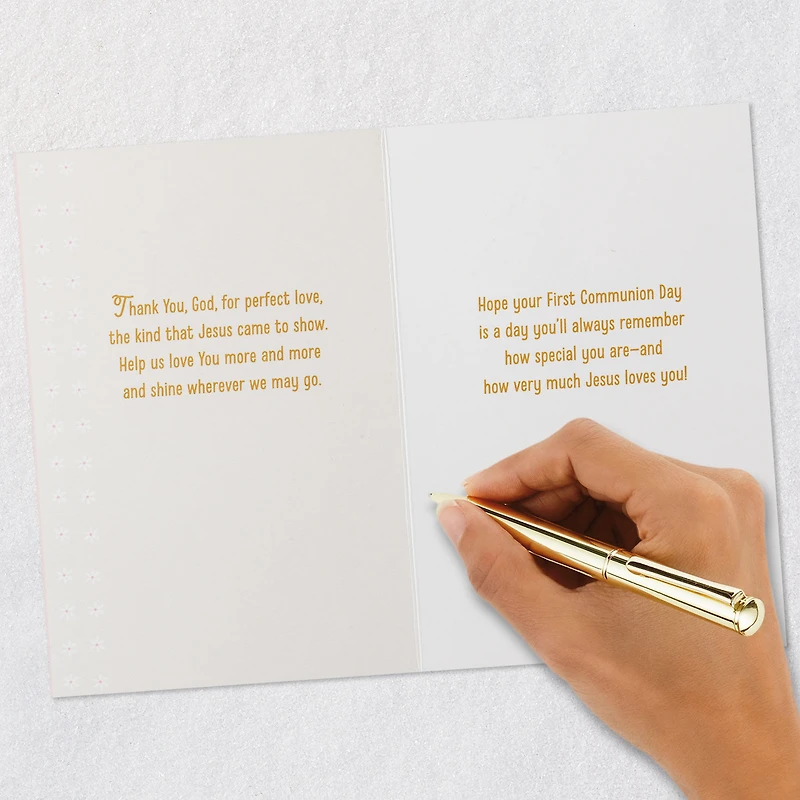 Thank You, God, for perfect love,
the kind that Jesus came to show.
Help us love You more and more
and shine wherever we may go.
Hope your First Communion Day
is a day you'll always remember
how special you are—and
how very much Jesus loves you!